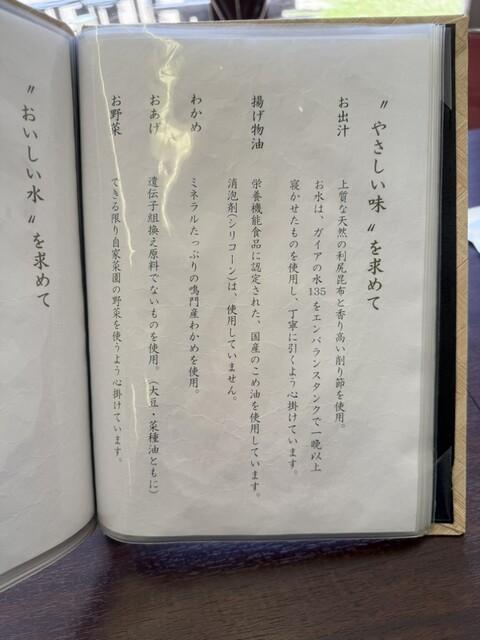 〝やさしい味〟を求めて
お出汁 上質な天然の利尻昆布と香り高い削り節を使用。
お水は、ガイアの水135をエンバランスタンクで一晩以上
寝かせたものを使用し、丁寧に引くよう心掛けています。
揚げ物油 栄養機能食品に認定された、国産のこめ油を使用しています。
消泡剤(シリコーン)は、使用していません。
わかめ ミネラルたっぷりの鳴門産わかめを使用。
おあげ 遺伝子組換え原料でないものを使用。(大豆・菜種油ともに)
お野菜 できる限り自家菜園の野菜を使うよう心掛けています。
〝おいしい水〟を求めて